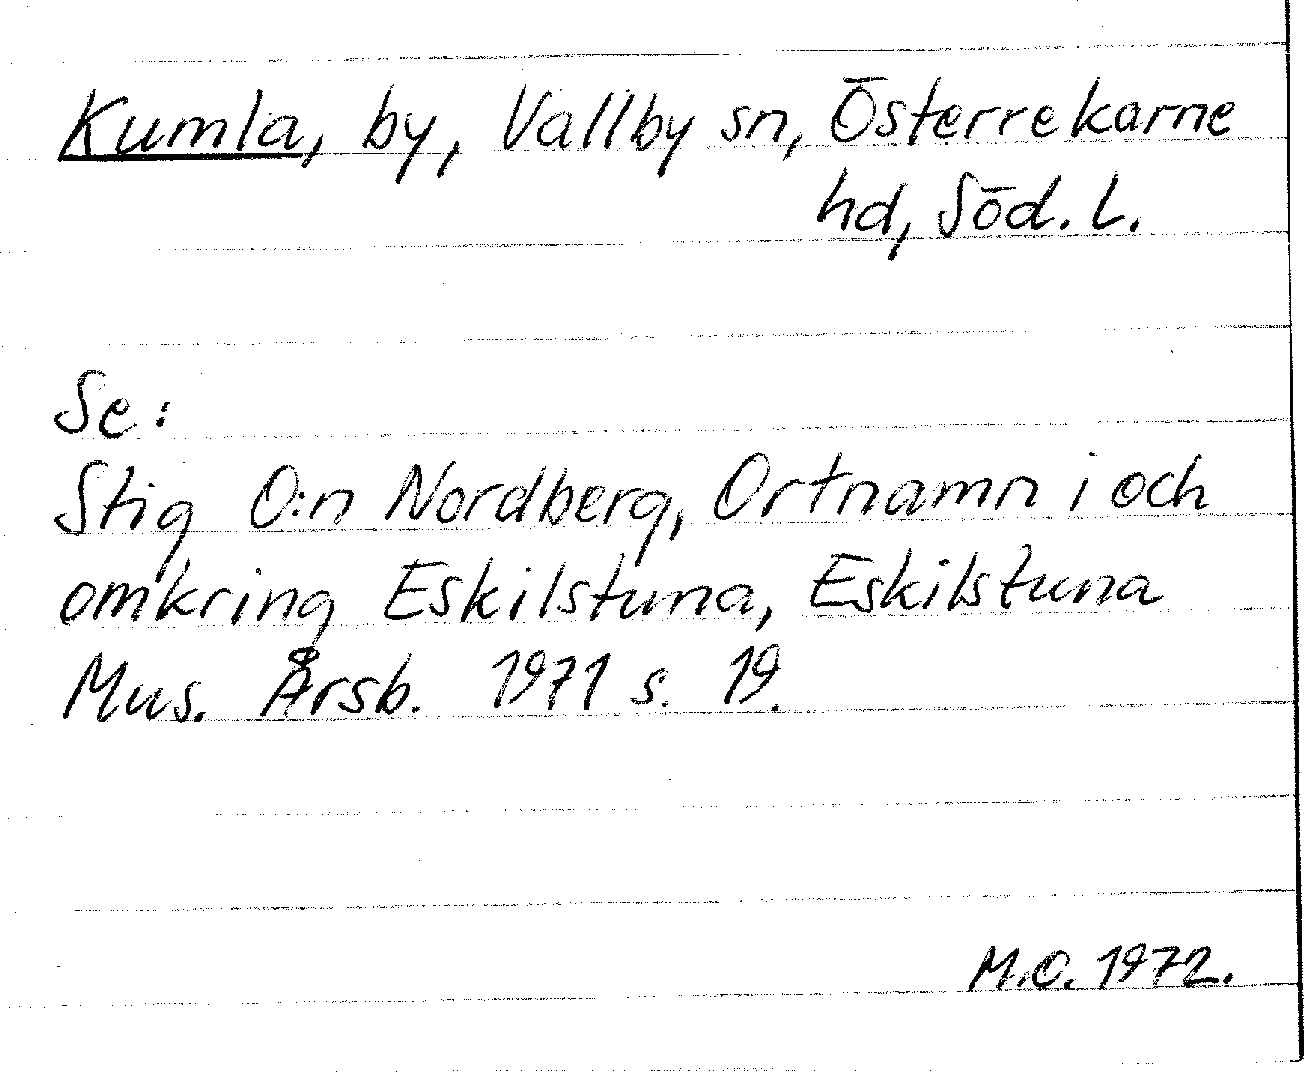 Kumla, by, Vallby sn, Österrekarne
hd, Söd. L.
Se:
Stig O:n Nordberg, Ortnamn i och
omkring Eskilstuna, Eskilstuna
Mus. Årsb. 1971 s. 19.
M.O. 1972.